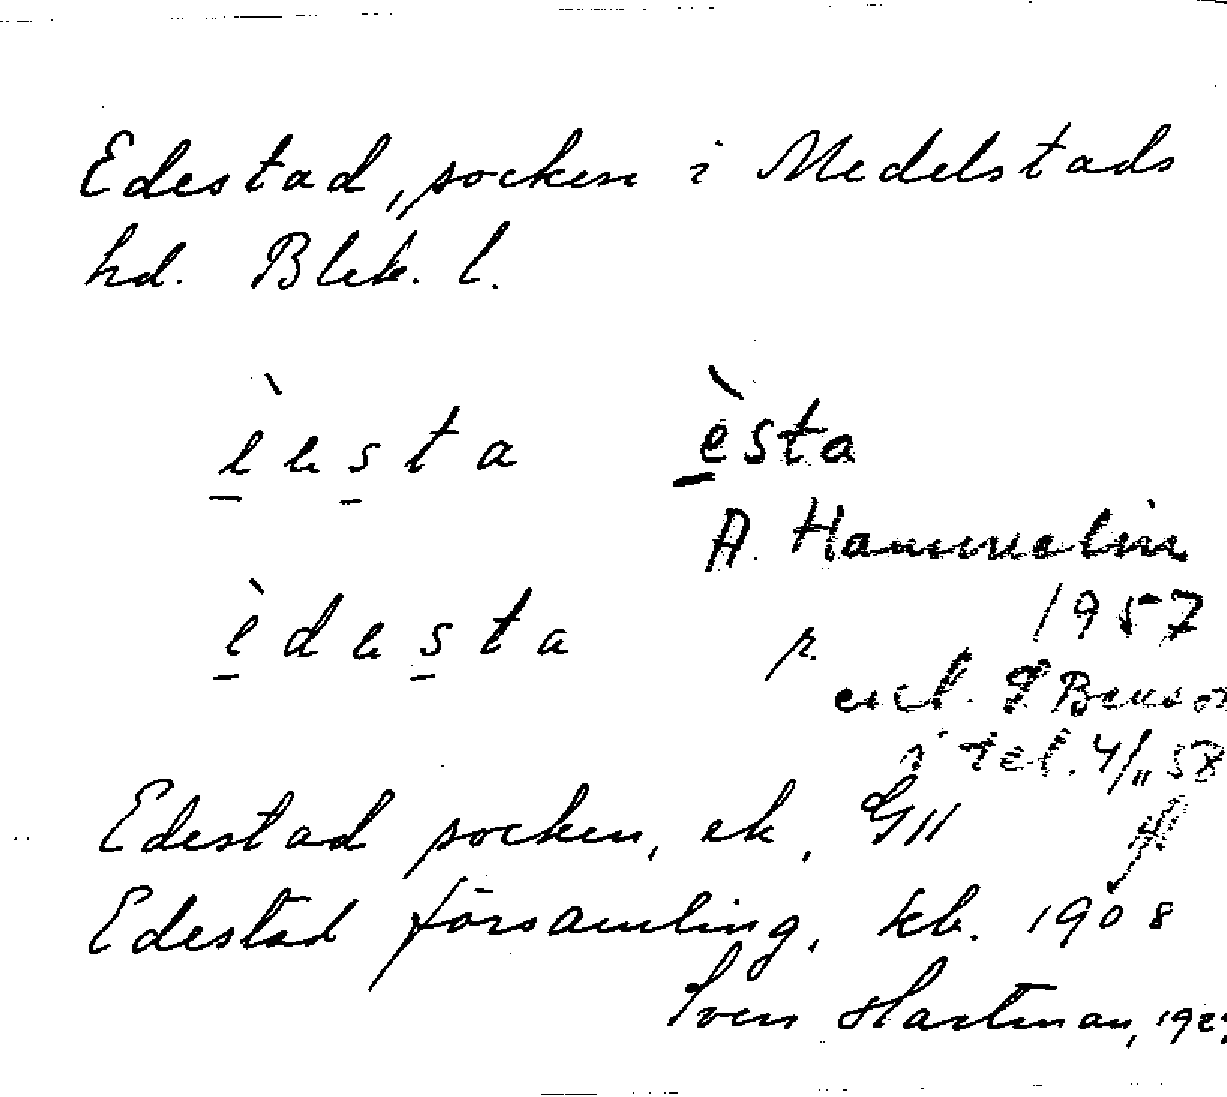 Edestad, socken i Medelstads
hd. Blek. l.
èesta èsta
A. Hammelin
1957
èdesta
enl. S Benson
i tel. 4/11 58
Edestad socken, ek, GII
Edestad församling, kb. 1908
Sven Hartman,